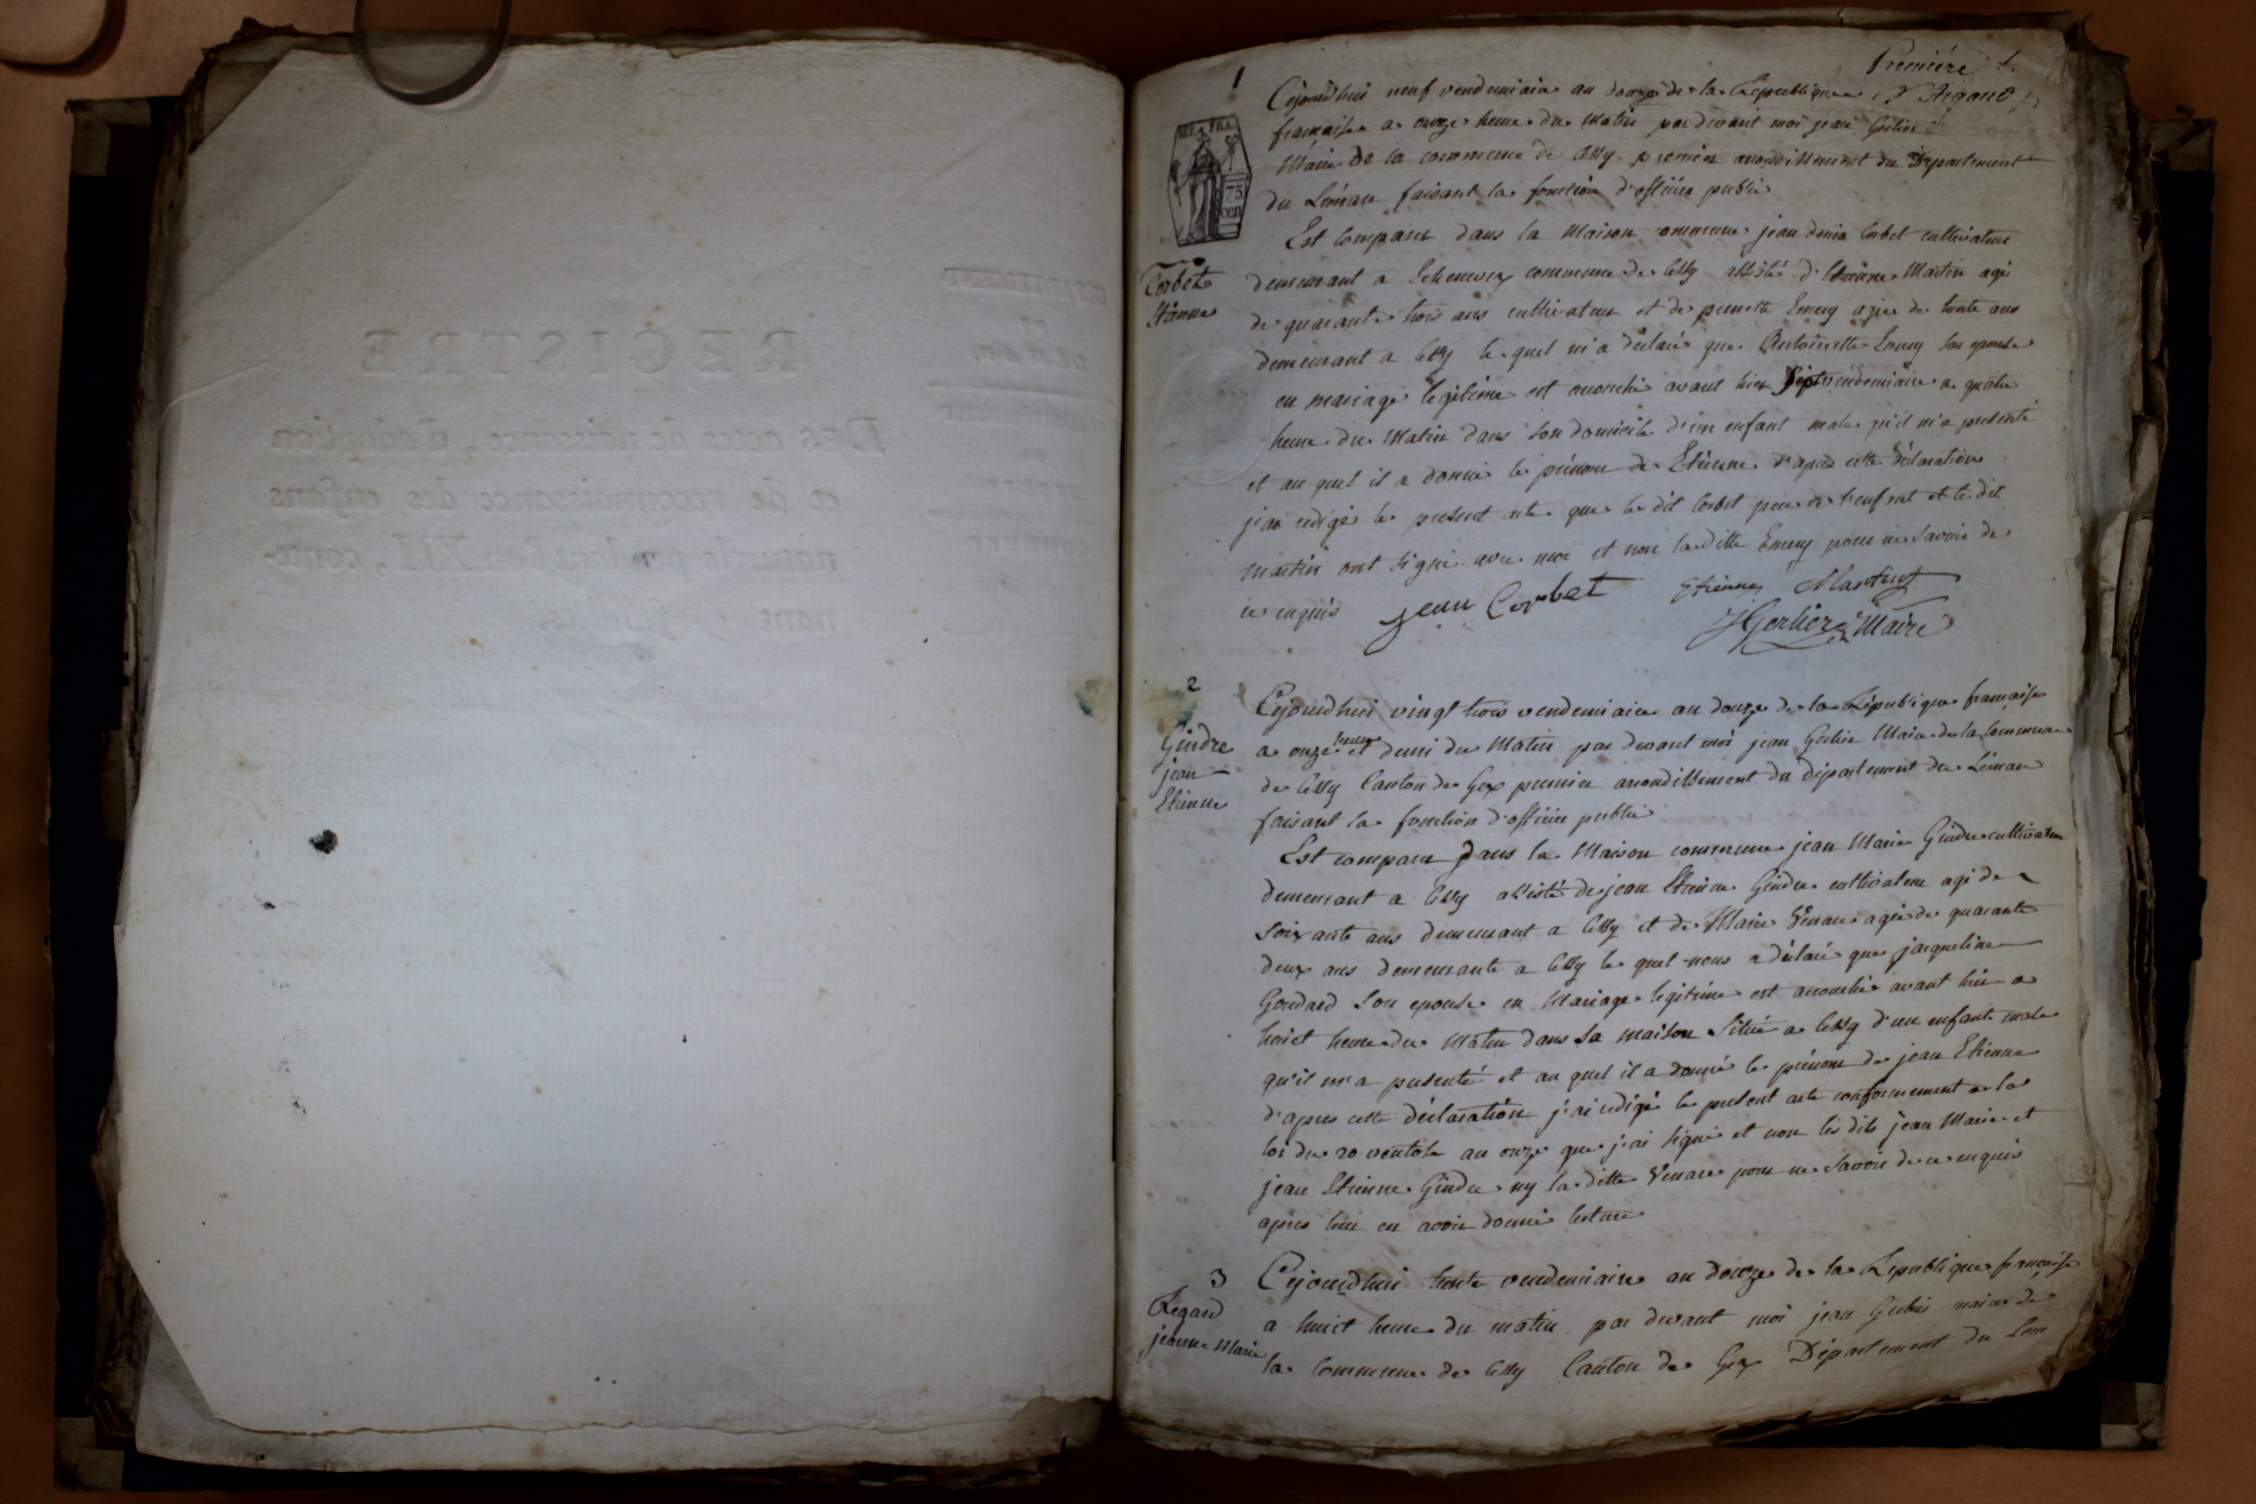 Première
D'Argand
1
Cejourd'hui neuf vendemiaire an douze de la Republique
française a onze heure du Matin par devant moi jean Gerlier
Maire de la commune de Cessy premier arrondissement du Département
du Léman faisant la fonction d'officier public
REP. FRA.
75
cen
Est comparu dans la Maison commune jean denis Corbet cultivateur
Corbet
Etienne
demeurant a commune de Cessy assisté d'Etienne Martin agé
de quarante trois ans cultivateur et de pernette Emery agée de trente ans
demeurant a Cessy le quel m'a déclaré que Antoinette Emery son epouse
en mariage legitime est accouché avant hier sept vendemiaire a quatre
heure du Matin dans son domicile d'un enfant male qu'il m'a presenté
et au quel il a donné le prénom de Etienne d'après cette déclaration
j'ai redigé le present acte que le dit Corbet pere de l'enfant et le dit
martin ont signé avec moi et non la ditte Emery pour ne savoir de
ce enquis jean Corbet Etienne Martin
JGerlier Maire
2
Gindre
jean
Etienne
Cejourd'hui vingt trois vendemiaire an douze de la République française
a onze heure et demi du Matin par devant moi jean Gerlier Maire de la Commune
de Cessy Canton de Gex premier arrondissement du département du Léman
faisant la fonction d'officier public
Est comparu dans la Maison commune jean Marie Gindre cultivateur
demeurant a Cessy assisté de jean Etienne Gindre cultivateur agé de
soixante ans demeurant a Cessy et de Marie Venare agée de quarante
deux ans demeurante a Cessy le quel nous a déclaré que jacqueline
Goudard son epouse en Mariage legitime est accouché avant hier a
huict heure du Matin dans sa maison située a Cessy d'un enfant male
qu'il m'a presenté et au quel il a donné le prénom de jean Etienne
d'apres cette déclaration j'ai redigé le present acte conformement a la
loi du 20 ventose an onze que j'ai signé et non les dits jean Marie et
jean Etienne Gindre ny la ditte Venare pour ne savoir de ce enquis
apres leur en avoir donné lecture
3
Regard
jeanne Marie
Cejourd'hui trente vendemiaire an douze de la République française
a huict heure du matin par devant moi jean Gerlier maire de
la Commune de Cessy Canton de Gex Département du Lem